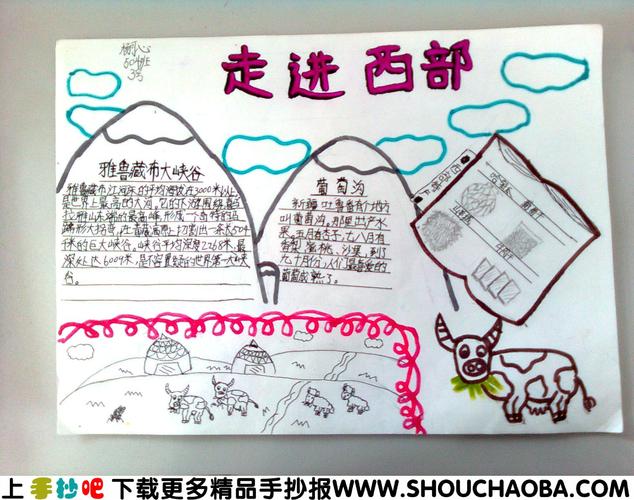 走进西部
504班
3号
雅鲁藏布大峡谷
雅鲁藏布江河床的平均海拔在3000米以上,
是世界上最高的大河。它的下游围绕着
拉雅山东端的最高峰,形成一个奇特的马
蹄形大拐弯,在青藏高原上切割出一条长504
千米的巨大峡谷。峡谷平均深度2268米,最
深处达6009米,是不容置疑的世界第一大峡
谷。
葡萄沟
新疆吐鲁番有个地方
叫葡萄沟。那里出产水
果。五月有杏子,七八月有
香梨、蜜桃、沙果,到了
九十月份,人们最喜爱的
葡萄成熟了。
上手抄吧 下载更多精品手抄报WWW.SHOUCHAOBA.COM